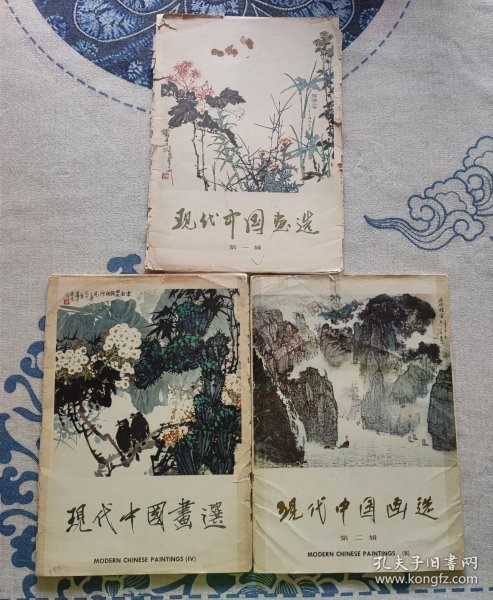 现代中国画选
第一辑
現代中國畫選
MODERN CHINESE PAINTINGS (IV)
现代中国画选
第二辑
MODERN CHINESE PAINTINGS (II)
孔夫子旧书网
www.kongfz.com